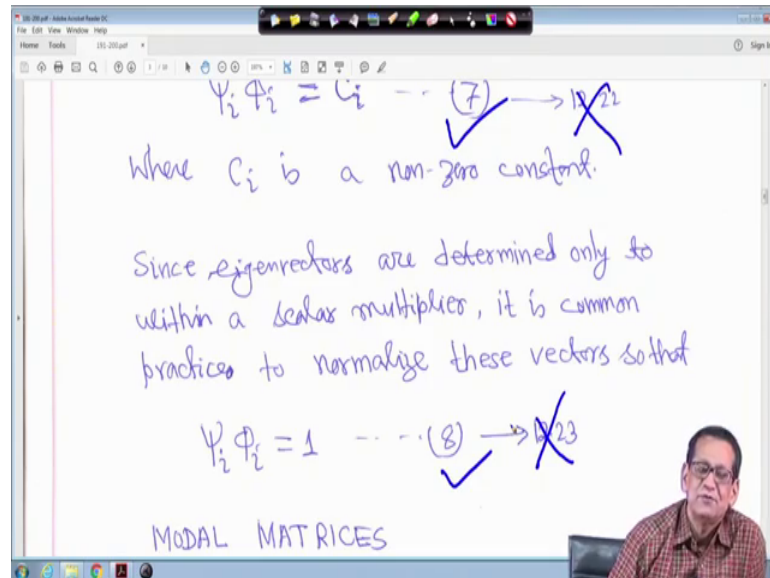 191-200.pdf - Adobe Acrobat Reader DC
File Edit View Window Help
Home Tools 191-200.pdf × Sign In
Ψi Φi = Ci -- (7) → 12.22
Where Ci is a non-zero constant.
Since eigenvectors are determined only to
within a scalar multiplier, it is common
practice to normalize these vectors so that
Ψi Φi = 1 -- -- (8) → 12.23
MODAL MATRICES